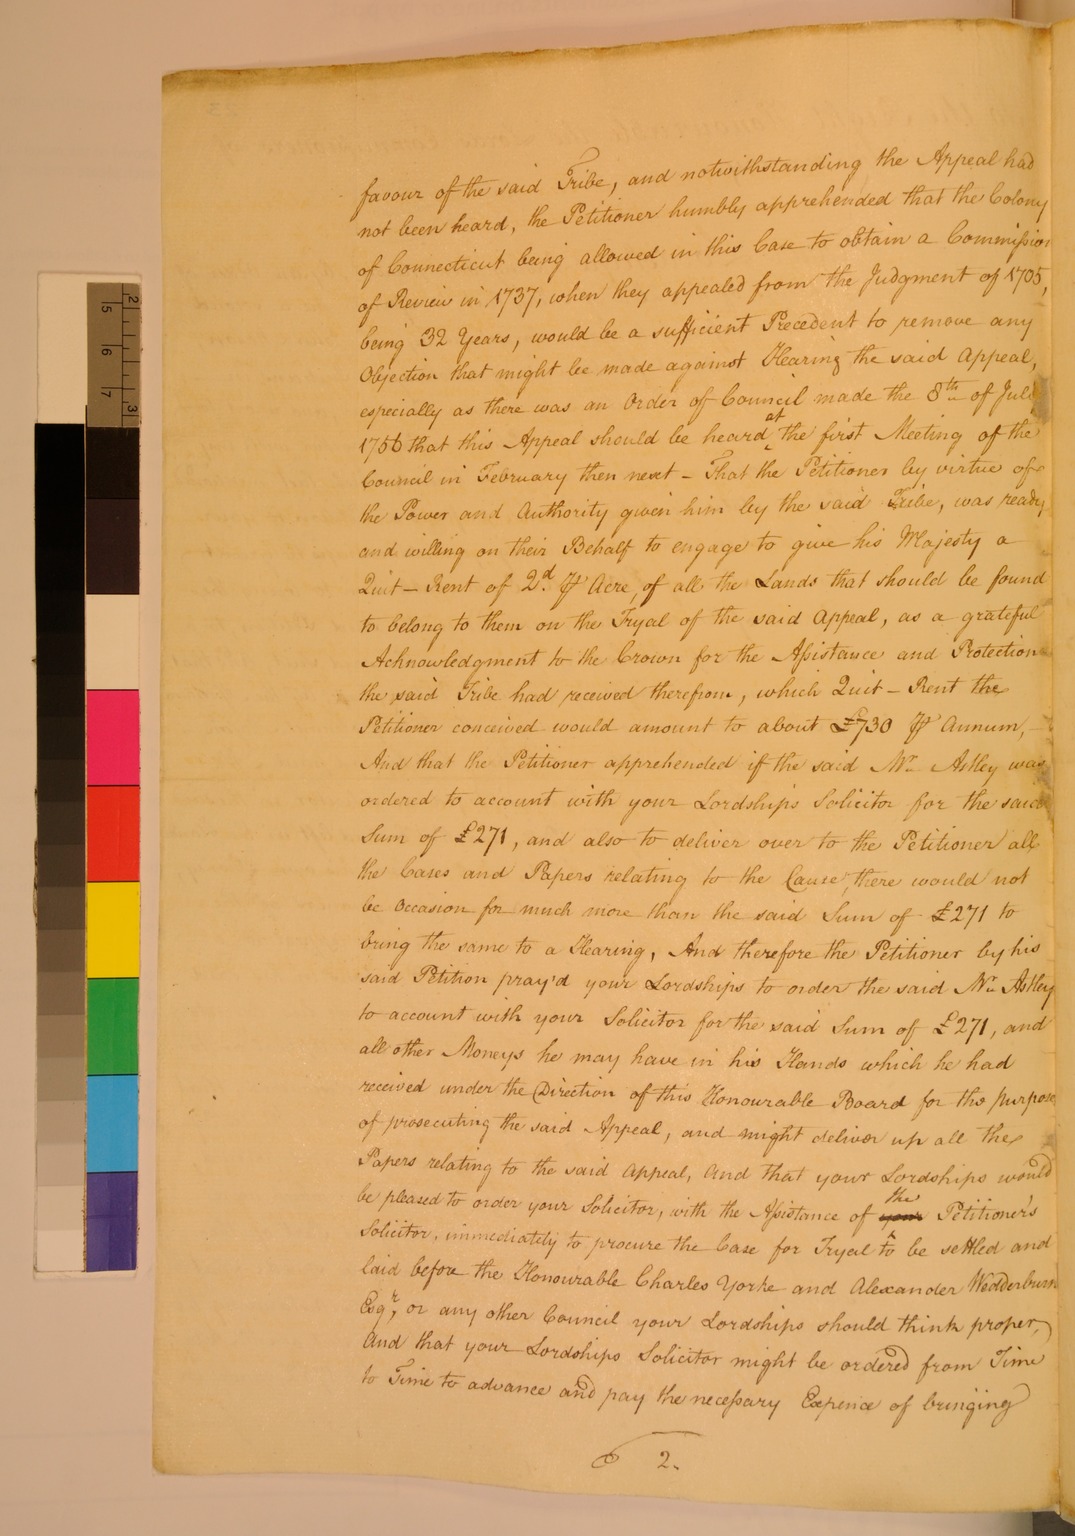 favour of the said Tribe, and notwithstanding the Appeal had
not been heard, the Petitioner humbly apprehended that the Colony
of Connecticut being allowed in this Case to obtain a Commission
of Review in 1737, when they appealed from the Judgment of 1705,
being 32 Years, would be a sufficient Precedent to remove any
Objection that might be made against Hearing the said Appeal,
especially as there was an Order of Council made the 8th of July
1756 that this Appeal should be heard at the first Meeting of the
Council in February then next – That the Petitioner by virtue of
the Power and Authority given him by the said Tribe, was ready
and willing on their Behalf to engage to give his Majesty a
Quit – Rent of 2d. ⅌ Acre, of all the Lands that should be found
to belong to them on the Tryal of the said Appeal, as a grateful
Acknowledgment to the Crown for the Assistance and Protection
the said Tribe had received therefrom, which Quit – Rent the
Petitioner conceived would amount to about £730 ⅌ Annum, –
And that the Petitioner apprehended if the said Mr. Astley was
ordered to account with your Lordships Solicitor for the said
Sum of £271, and also to deliver over to the Petitioner all
the Cases and Papers relating to the Cause, there would not
be Occasion for much more than the said Sum of £271 to
bring the same to a Hearing, And therefore the Petitioner by his
said Petition pray'd your Lordships to order the said Mr. Astley
to account with your Solicitor for the said Sum of £271, and
all other Moneys he may have in his Hands which he had
received under the Direction of this Honourable Board for the purpose
of prosecuting the said Appeal, and might deliver up all the
Papers relating to the said Appeal, And that your Lordships would
be pleased to order your Solicitor, with the Assistance of your the Petitioner's
Solicitor, immediately to procure the Case for Tryal to be settled and
laid before the Honourable Charles Yorke and Alexander Wedderburn
Esqr, or any other Council your Lordships should think proper,
And that your Lordships Solicitor might be ordered from Time
to Time to advance and pay the necessary Expence of bringing
2.
2
5
6
7
3